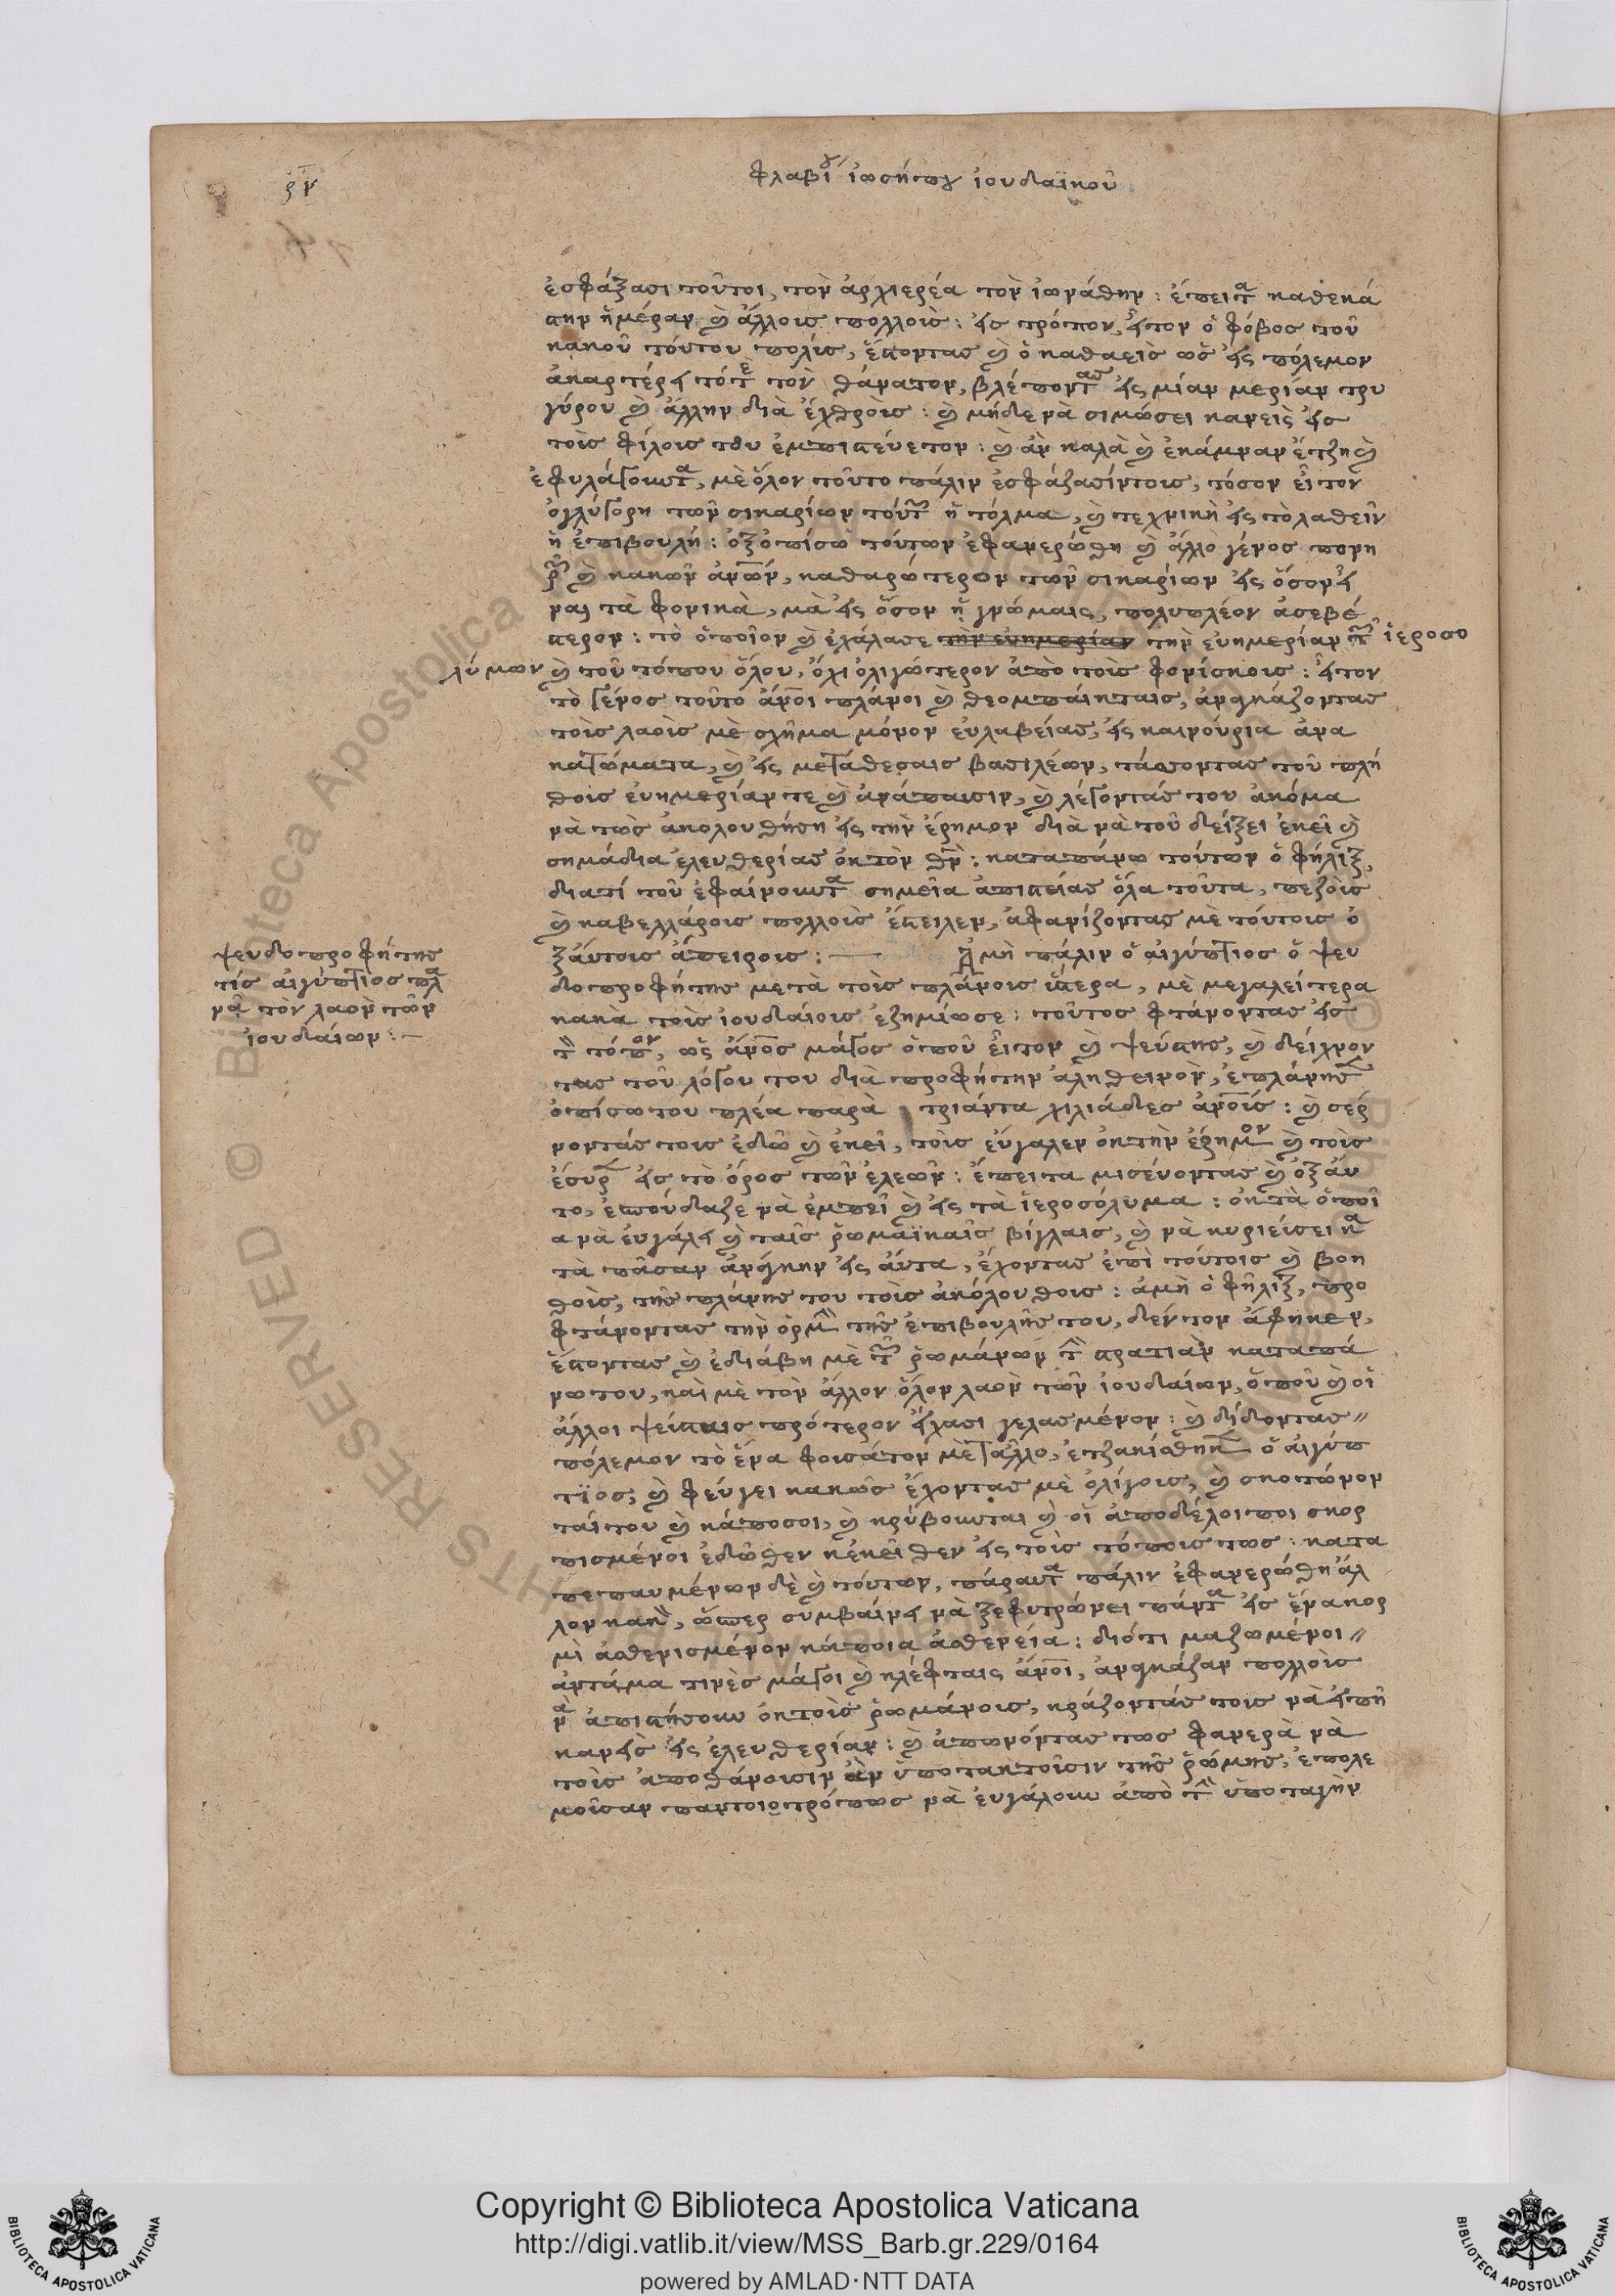 ρν
φλαβίου ἰωσήπου ἰουδαϊκοῦ
ἐσφάξασι τοῦτοι, τὸν ἀρχιερέα τὸν ἰωνάθην: ἔπειτα καθενά
την ἡμέραν καὶ ἄλλοις πολλοὶς: εἰς τρόπον, εἶτον ὁ φόβος τοῦ
κακοῦ τούτου πολὶς, καὶ ὁ καθαεὶς ὡς εἰς πόλεμον
ἀκαρτέρει τότε τὸν θάνατον, βλέποντας εἰς μίαν μερίαν τρυ
γύρου καὶ ἄλλην διὰ ἐχθροὶς: καὶ μήδε νὰ σιμώσει κανεὶς εἰς
τοὶς φίλοις του ἐμπιστεύετον: καὶ ἂν καλὰ καὶ ἐκάμναν ἔτζη καὶ
ἐφυλάγουνται, μὲ ὅλον τοῦτο πάλιν ἐσφάζασίντοις, τόσον εἶτον
ὀγλύγορη τῶν σικαρίων τούτων ἡ τόλμα, καὶ τεχνικὴ εἰς τὸ λαθεῖν
ἡ ἐπιβουλή: ὀξοπίσω τούτων ἐφανερώθη καὶ ἄλλο γένος πονη
ρῶν καὶ κακῶν ἀνων, καθαρώτερον τῶν σικαρίων εἰς ὅσον εἶ
ναι τὰ φονικὰ, μὰ εἰς ὅσον ἡ γνώμαις, πολυπλέον ἀσεβέ
στερον: τὸ ὁποῖον καὶ ἐχάλασε τὴν εὐημερίαν τὴν εὐημερίαν τῶν ἱεροσο
λύμων καὶ τοῦ τόπου ὅλου, ὄχι ὀλιγώτερον ἀπὸ τοὶς φονίσκοις: εἶτον
τὸ γένος τοῦτο ἄνοι πλάνοι καὶ θεομπαίκταις, ἀναγκάζοντας
τοὶς λαοὶς μὲ σχῆμα μόνον εὐλαβείας, εἰς καινούρια ἀνα
κατώματα, καὶ εἰς μετάθεσαις βασιλέων, τάσσοντας τοῦ πλή
θοις εὐημερίαν τε καὶ ἀνάπαυσιν, καὶ λέγοντάς του ἀκόμα
νὰ τοὺς ἀκολουθήση εἰς τὴν ἔρημον διὰ νὰ τοῦ δείξει ἐκεῖ καὶ
σημάδια ἐλευθερίας ὀκτὸν θν: καταπάνω τούτων ὁ φήλιξ,
διατί τοῦ ἐφαίνουντα σημεῖα ἀπιστείας ὅλα τοῦτα, πεζοὶς
καὶ καβελλάροις πολλοὶς ἔστειλεν, ἀφανίζοντας μὲ τούτοις ὀ
ξάυτοις ἄπειροις: — Ἀμὴ πάλιν ὁ αἰγύπτιος ὁ ψευ
δοπροφήτης μετὰ τοὶς πλάνοις ὕστερα, μὲ μεγαλείτερα
κακὰ τοὶς ἰουδαίοις ἐζημίωσε: τοῦτος φτάνοντας εἰς
τὸν τόπον, ὡς ἄνος μάγος ὁποῦ εἶτον καὶ ψεύστης, καὶ δείχνον
τας τοῦ λόγου του διὰ προφήτην ἀληθεινὸν, ἐπλάνησεν
ὀπίσω του πλέα παρὰ τριάντα χιλιάδες ἀνοίς: καὶ σέρ
νοντάς τοις ἐδῶ καὶ ἐκεῖ, τοὶς εὔγαλεν ὀκτὴν ἔρημον καὶ τοὶς
ἔσυρεν εἰς τὸ ὄρος τῶν ἐλεῶν: ἔπειτα μισεύοντας καὶ ὀξάυ
το, ἐσπούδαζε νὰ ἐμπεῖ καὶ εἰς τὰ ἱεροσόλυμα: ὀκτὰ ὁποῖ
α νὰ εὐγάλει καὶ ταῖς ῥωμαϊκαῖς βίγλαις, καὶ νὰ κυριεύσει κα
τὰ πᾶσαν ἀνάγκην εἰς ἄυτα, ἔχοντας ἐπὶ τούτοις καὶ βοη
θοὶς, τῆς πλάνης του τοὶς ἀκόλουθοις: ἀμὴ ὁ φῆλιξ, προ
φτάνοντας τὴν ὁρμὴν τῆς ἐπιβουλῆς του, δέν τον ἄφηκεν,
καὶ ἐδιάβη μὲ τῶν ῥωμάνων τὴν στρατιὰν καταπά
νωτου, καὶ μὲ τὸν ἄλλον ὅλον λαὸν τῶν ἰουδαίων, ὁποῦ καὶ οἱ
ἄλλοι ψεύσταις πρότερον εἴχασι γελασμένον: καὶ δίδοντας
πόλεμον τὸ ἕνα φουσάτον μὲ τἄλλο, ἐτζακίσθηκεν ὁ αἰγύπ
τϊος, καὶ φεύγει κακῶς ἔχοντας μὲ ὀλίγοις, καὶ σκοτώνον
ταί του καὶ κάποσοι, καὶ κρύβουνται καὶ οἱ ἀποδέλοιποι σκορ
πισμένοι ἐδῶθεν κἐκεῖθεν εἰς τοὶς τόποις τως: κατα
πεπαυμένων δὲ καὶ τούτων, πάραυτα πάλιν ἐφανερώθη ἄλ
λον κακὸν, ὥσπερ συμβαίνει νὰ ξεφυτρώνει πάντα εἰς ἕνα κορ
μὶ ἀσθενισμένον κάποια ἀσθενεία: διότι μαζωμένοι
ἀντάμα τινὲς μάγοι καὶ κλέφταις ἄνοι, ἀναγκάζαν πολλοὶς
νὰ ἀπιστήσουν ὀκτοὶς ῥωμάνοις, κράζοντάς τοις νὰ
εἰς ἐλευθερίαν: καὶ ἀπονόντας τως φανερὰ νὰ
τοὶς ἀποθάνοισιν ἂν ὑποτακτοῦσιν τῆς ῥώμης, ἐπολε
μοῦσαν παντοιοτρόπως νὰ εὐγάλουν ἀπὸ τὴν ὑποταγὴν
ψευδοπροφήτης
τίς αἰγύπτιος πλα
νᾶ τὸν λαὸν τῶν
ἰουδαίων: —
Copyright © Biblioteca Apostolica Vaticana
http://digi.vatlib.it/view/MSS_Barb.gr.229/0164
powered by AMLAD·NTT DATA
BIBLIOTECA APOSTOLICA VATICANA
BIBLIOTECA APOSTOLICA VATICANA